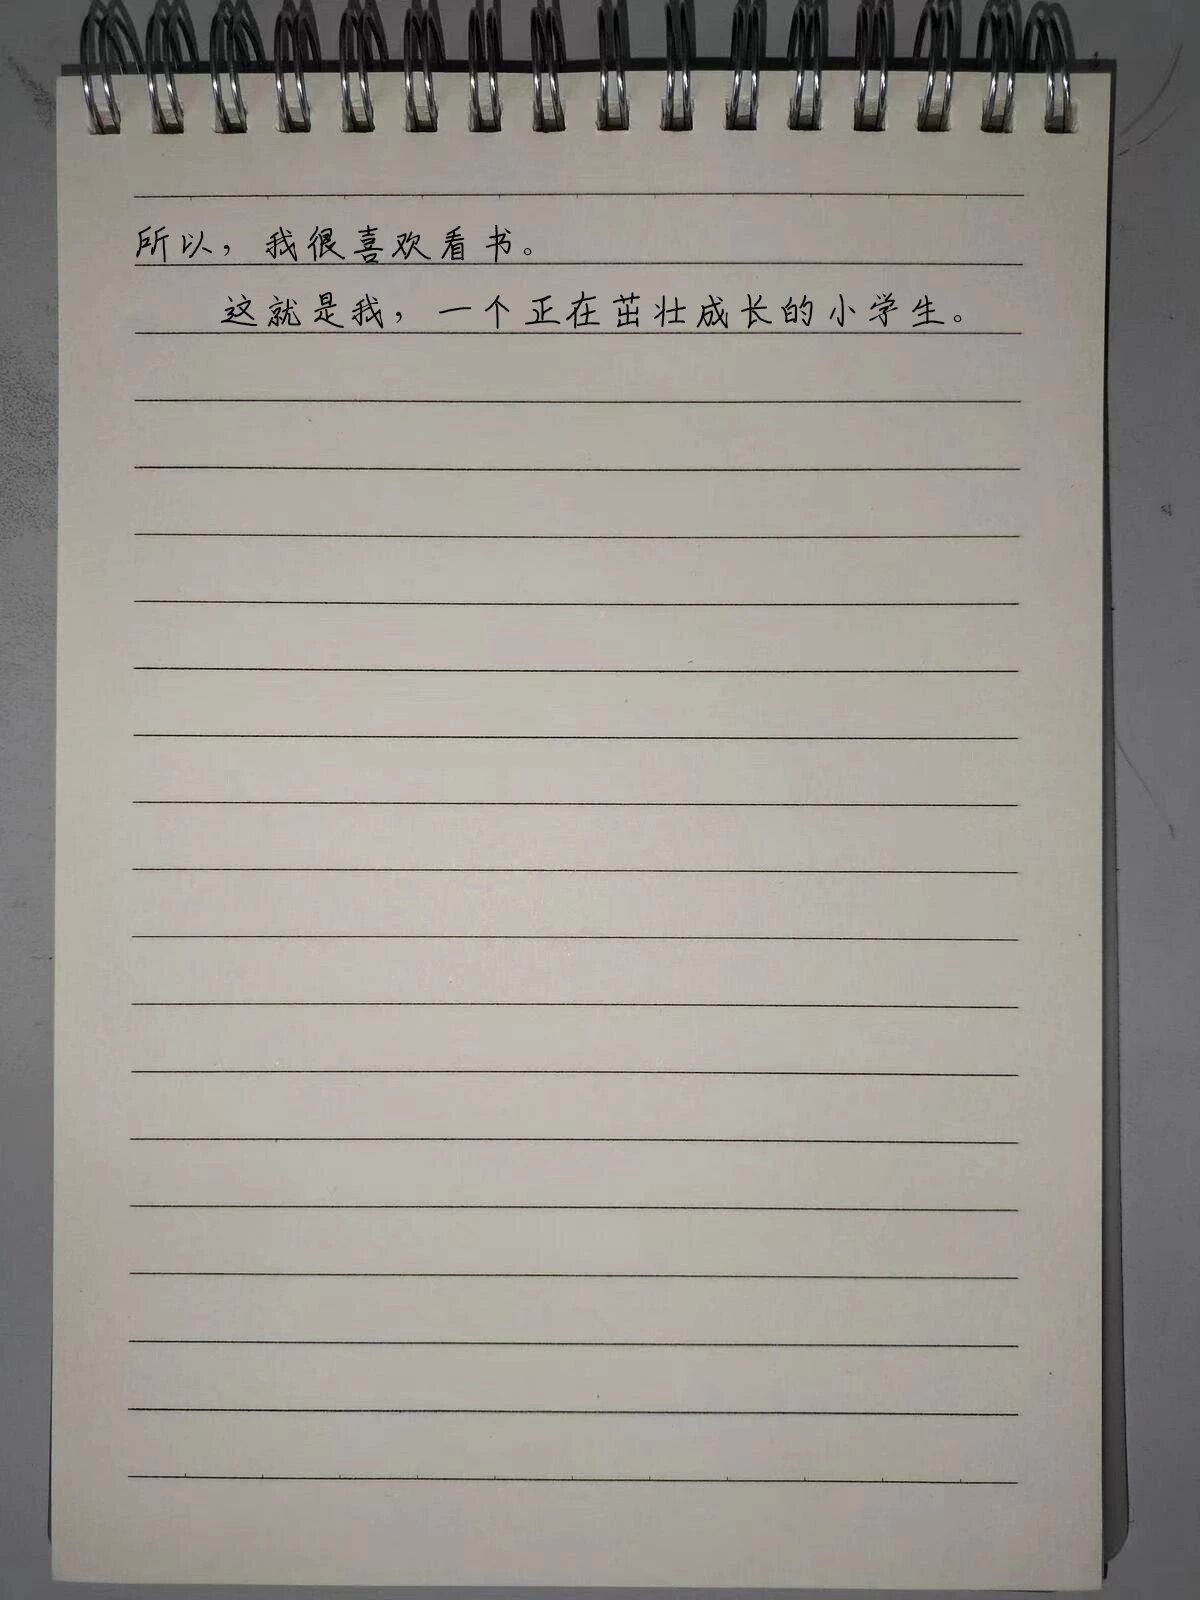 所以，我很喜欢看书。
这就是我，一个正在茁壮成长的小学生。